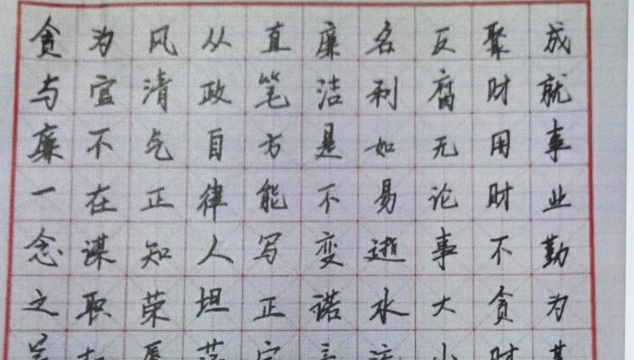 成就事业勤为
聚财用财不贪财
反腐无论事大小
名利如易逝水流
廉洁是不变诺言
直笔方能写正字
从政自律人坦荡
风清气正知荣辱
为官不在谋职
贪与廉一念之